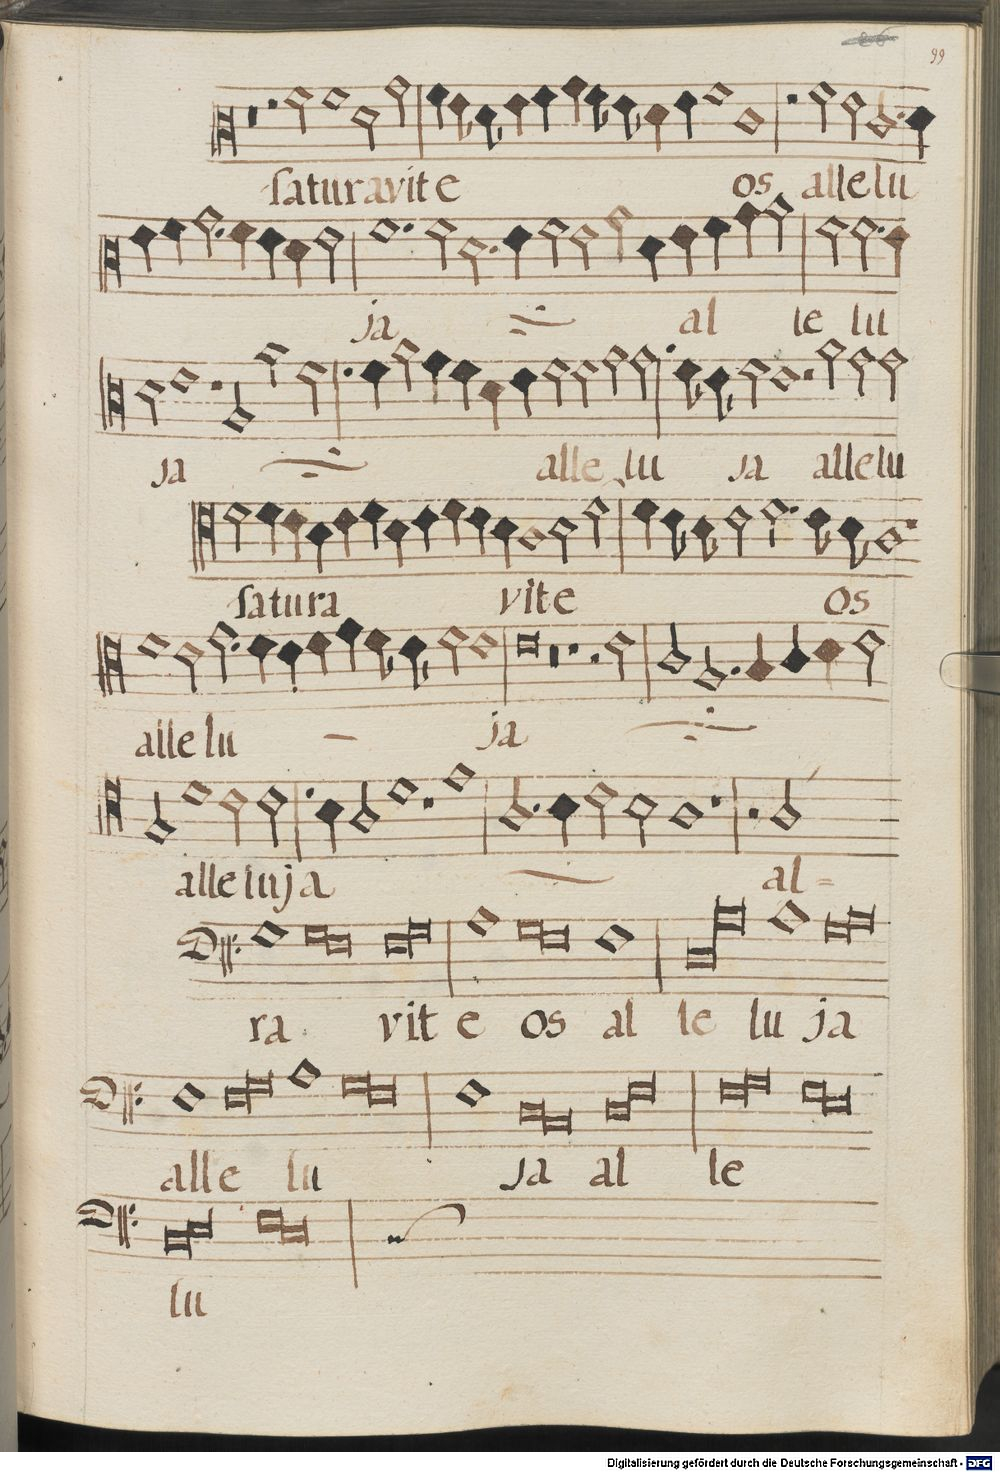 99
saturavite os allelu
ja al le lu
ja alle lu ja allelu
satura vite os
alle lu ja
alleluja al=
ra vit e os al le lu ja
alle lu ja al le
lu
Digitalisierung gefördert durch die Deutsche Forschungsgemeinschaft - DFG